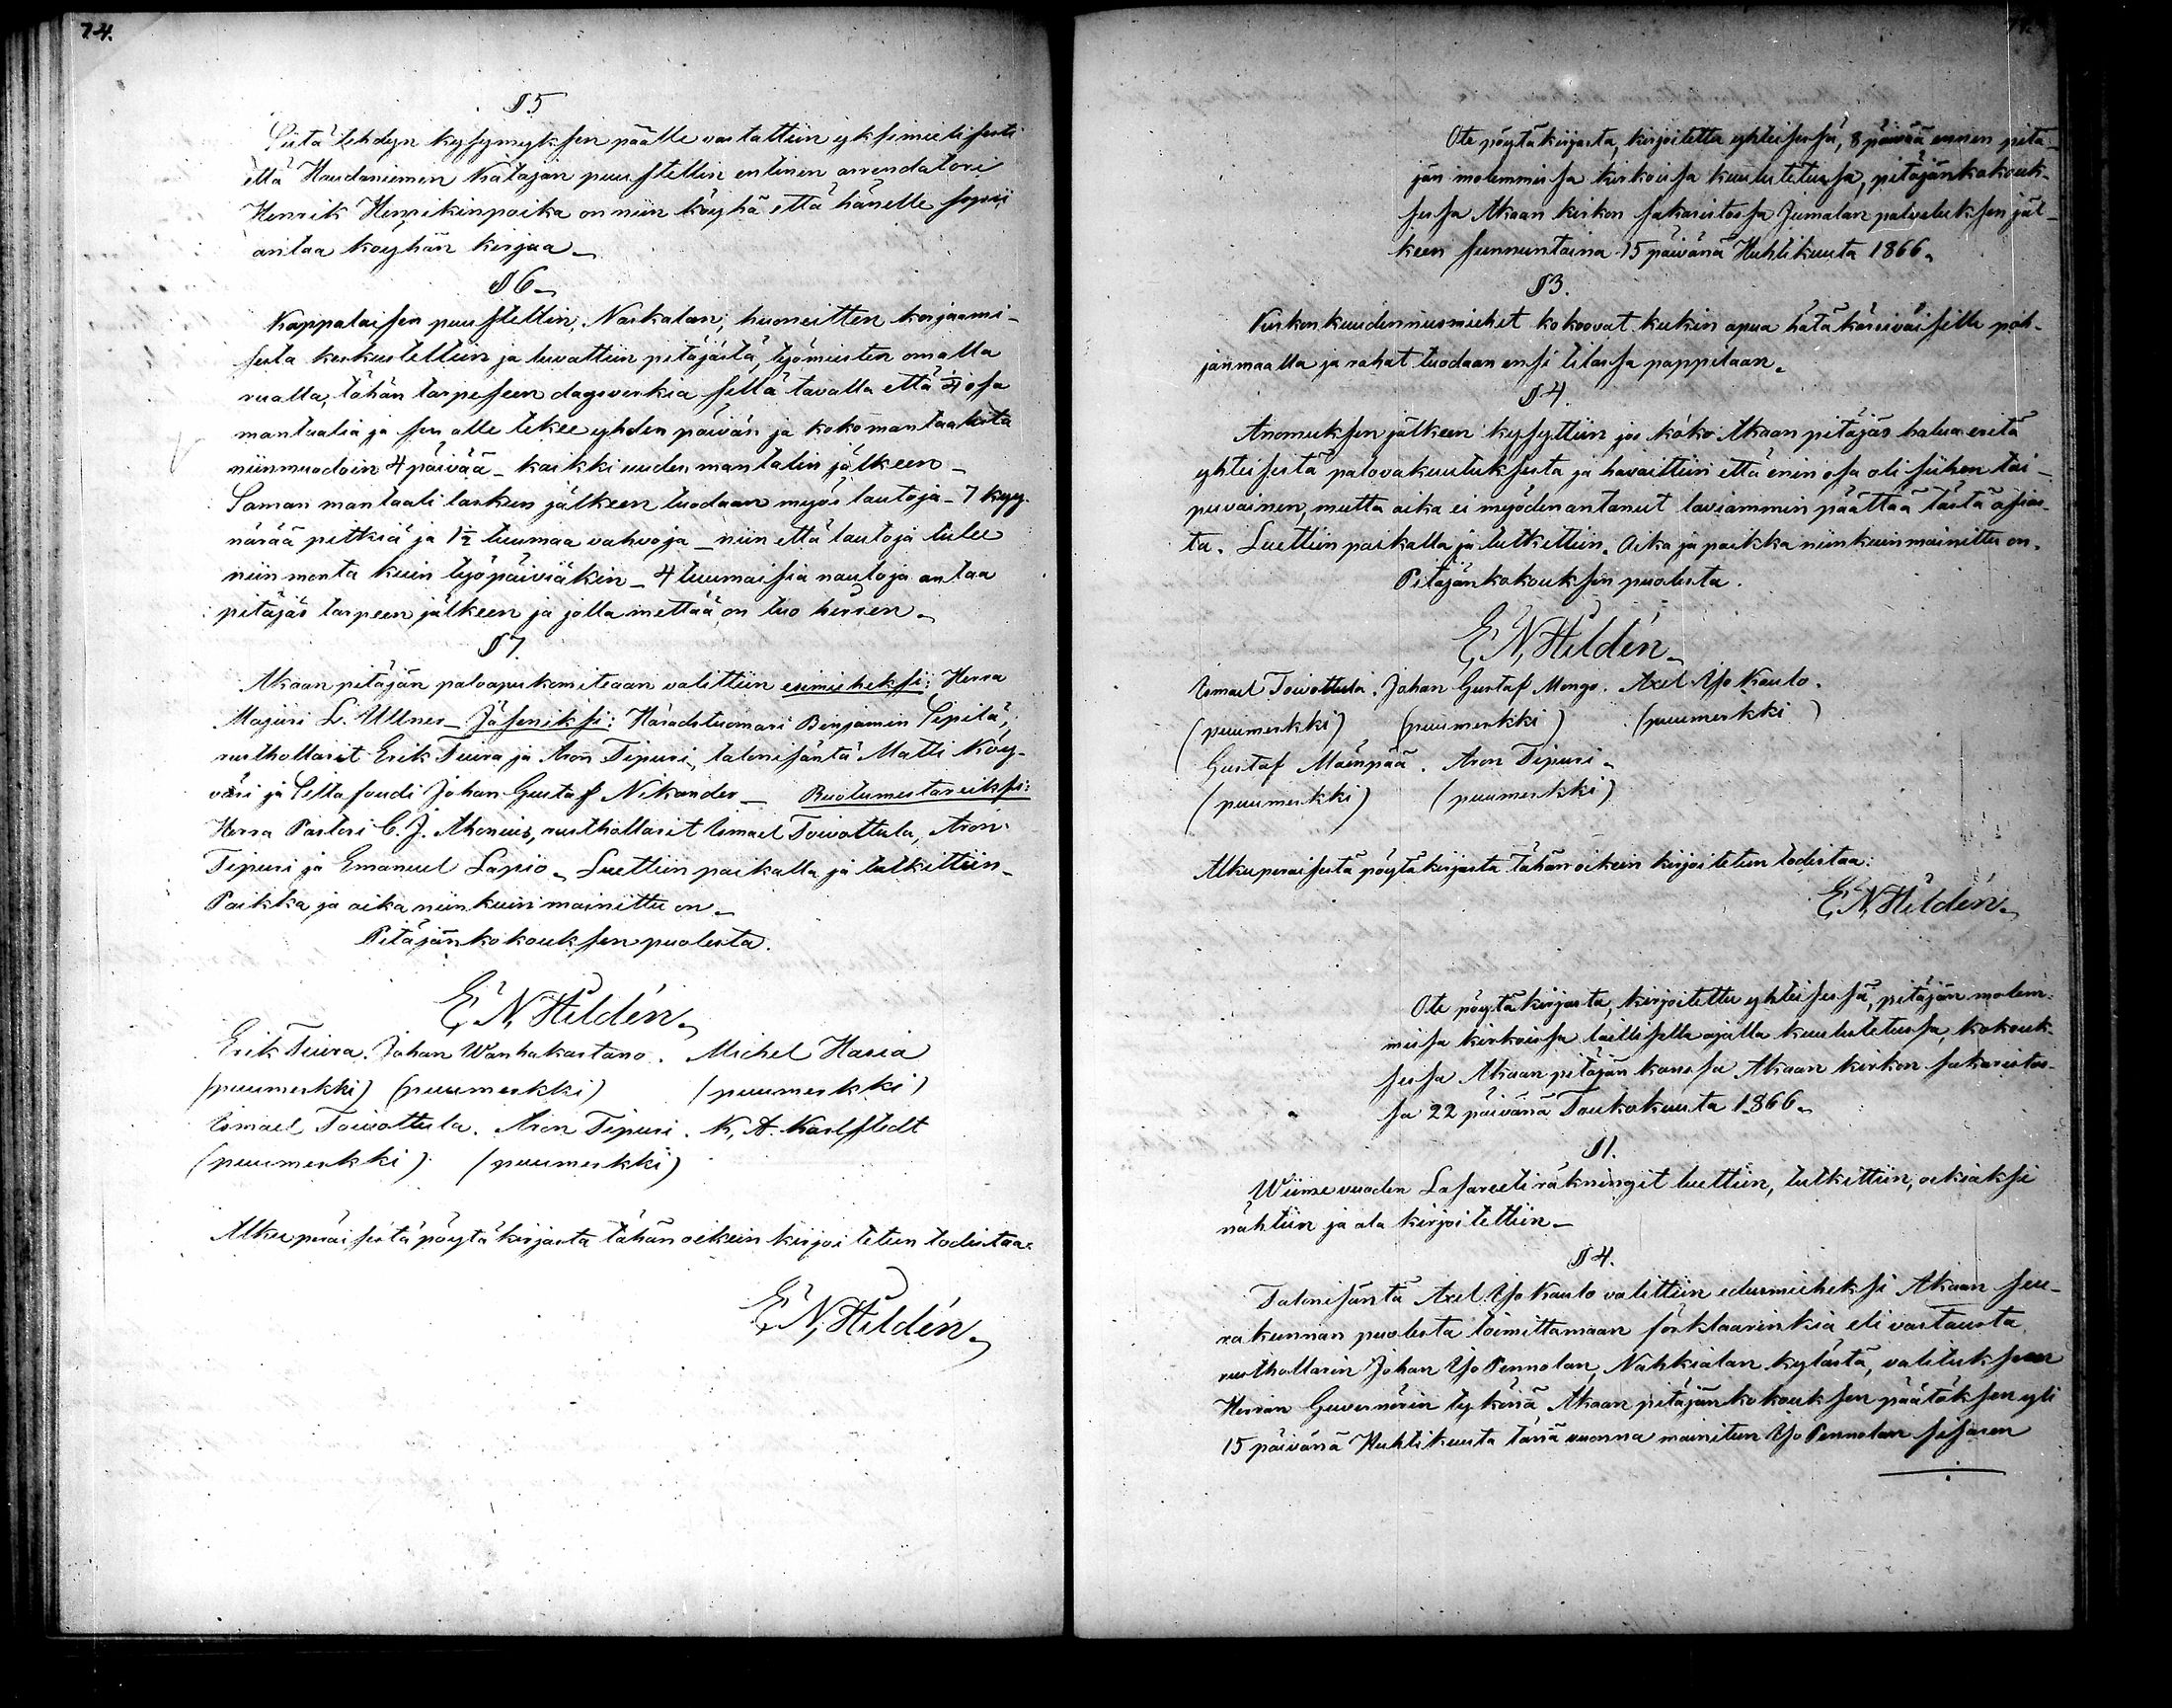 74.
§ 5
Siitä tehdyn kysymyksen päälle vastattiin yksimielisesti
että Haudaniemen Katajan puustellin entinen arrendatori
Henrik Henrikinpoika on niin köyhä että hänelle sopii
antaa köyhän kirjaa_
§ 6_
Kappalaisen puustellin, Naskalan, huoneitten korjaami-
sesta keskusteltiin ja luvattiin pitäjästä, työmiesten omalla
rualla, tähän tarpeseen dagsverkiä sellä tavalla että 1/4 osa
mantualia ja sen alle tekee yhden päivän ja koko mantaalista
niinmuodoin 4 päivää_ kaikki uuden mantalin jälkeen_
Saman mantaali laskun jälkeen tuodaan myös lautoja_ 7 kyy-
närää pitkiä ja 1½ tuumaa vahvoja_ niin että lautoja tulee
niin monta kuin työpäiviäkin_ 4 tuumaisia nauloja antaa
pitäjäs tarpeen jälkeen ja jolla mettää on tuo hirren_
§ 7.
Akaan pitäjän paloapukomiteaan valittiin esimieheksi: Herra
Majuri L. Ullner_ Jäseniksi: Häradstuomari Benjamin Sipilä,
rusthollarit Erik Tiura ja Aron Tipuri, talonisäntä Matti Köy-
väri ja Siltafoudi Johan Gustaf Nikander_ Ruotumestareiksi:
Herra Pastori C. J. Ahonius, rusthollarit Ismael Toivottula, Aron
Tipuri ja Emanuel Lapio_ Luettiin paikalla ja tutkittiin_
Paikka ja aika niinkuin mainittu on_
Pitäjänkokouksen puolesta.
E. N. Hildén_
Erik Tiura. Johan Wanhakartano. Michel Haria
(puumerkki) (puumerkki) (puumerkki)
Ismael Toivottula. Aron Tipuri. K. A. Karlstedt
(puumerkki) (puumerkki)
Alkuperäisestä pöytäkirjasta tähän oikein kirjoitetun todistaa:
E. N. Hildén_
Ote pöytäkirjasta, kirjoitettu yhteisessä, 8 päivää ennen pitä-
jän molemmissa kirkoissa kuulutetussa, pitäjänkokouk-
sessa Akaan kirkon sakaristossa Jumalan palveluksen jäl-
keen sunnuntaina 15 päivänä Huhtikuuta 1866_
§ 3.
Kirkon kuudennusmiehet kokoovat kukin apua hätäkärsiväisille poh-
janmaalla ja rahat tuodaan ensi tilassa pappilaan_
§ 4.
Anomuksen jälkeen kysyttiin jos koko Akaan pitäjäs halua eritä
yhteisestä palovakuutuksesta ja havaittiin että enin osa oli siihen tai-
puvainen, mutta aika ei myödenantanut laviammin päättää tästä asias-
ta. Luettiin paikalla ja tutkittiin. Aika ja paikka niinkuin mainittu on.
Pitäjänkokouksen puolesta.
E. N. Hildén_
Ismael Toivottula. Johan Gustaf Mongo. Axel Yso Kaulo.
(puumerkki) (puumerkki) (puumerkki)
Gustaf Mäenpää. Aron Tipuri_
(puumerkki) (puumerkki)
Alkuperäisestä pöytäkirjasta tähän oikein kirjoitetun todistaa:
E. N. Hildén_
Ote pöytäkirjasta, kirjoitettu yhteisessä, pitäjän molem-
missa kirkoissa laillisella ajalla kuulutetussa, kokouk-
sessa Akaan pitäjän kanssa Akaan kirkon sakaristos-
sa 22 päivänä Toukokuuta 1866_
§ 1.
Wiime vuoden Lasareetiräkningit luettiin, tutkittiin, oikiaksi
nähtiin ja ala kirjoitettiin_
§ 4.
Talonisäntä Axel Yso Kaulo valittiin edusmieheksi Akaan seu-
rakunnan puolesta toimittamaan förklaarinkia eli vastausta
rusthollarin Johan Yso Pennolan, Nahkialan kylästä, valitukseen
Herran Guvernörin tykönä Akaan pitäjänkokouksen päätöksen yli
15 päivänä Huhtikuuta tänä vuonna mainitun Yso Pennolan sisaren